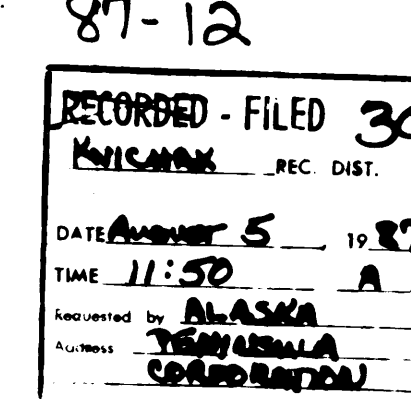 87-12
RECORDED - FILED 30
KVICHAK REC. DIST.
DATE August 5, 1987
TIME 11:50 A
Requested by ALASKA
Address PENINSULA
CORPORATION